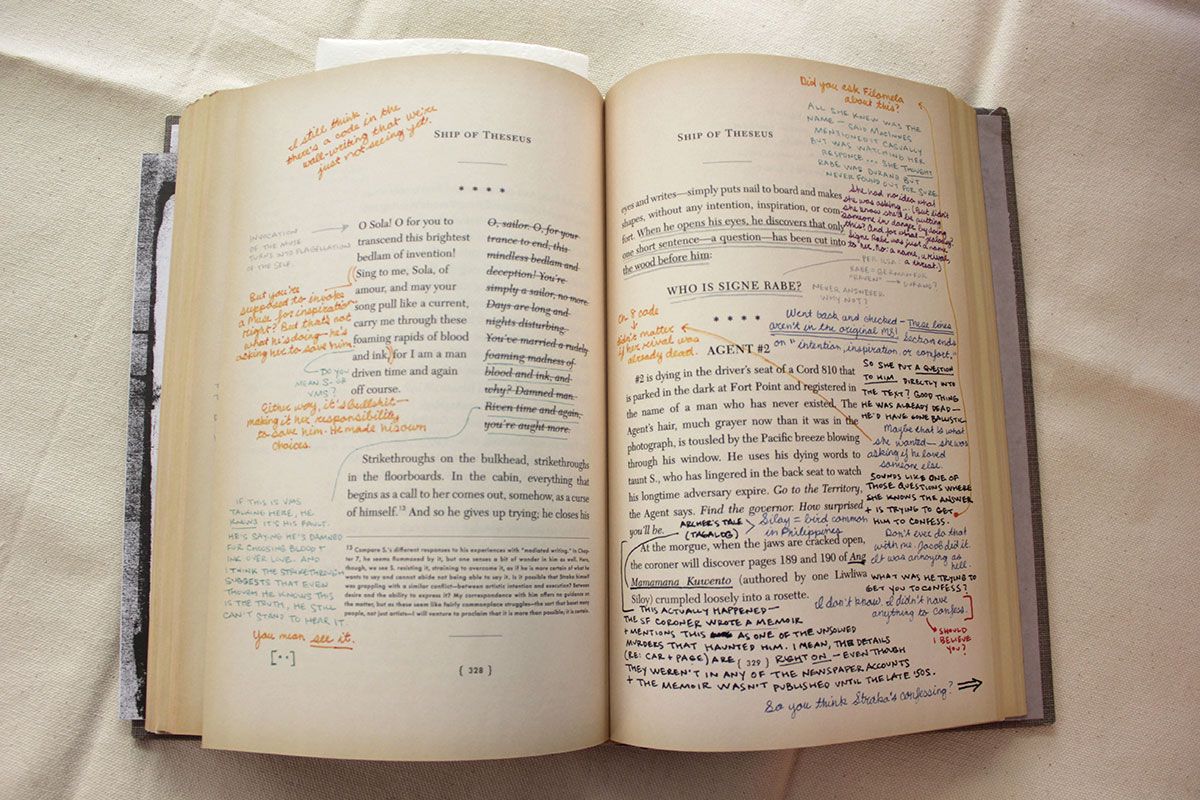 I still think
there's a code in the
wall-writing that we're
just not seeing yet.
SHIP OF THESEUS
* * * *
INVOCATION
OF THE MUSE
TURNS INTO FLAGELLATION
OF THE SELF.
O Sola! O for you to
transcend this brightest
bedlam of invention!
Sing to me, Sola, of
amour, and may your
song pull like a current,
carry me through these
foaming rapids of blood
and ink, for I am a man
driven time and again
off course.
O, sailor. O, for your
trance to end, this
mindless bedlam and
deception! You're
simply a sailor, no more.
Days are long and
nights disturbing.
You've married a rudely,
foaming madness of
blood and ink, and
why? Damned man.
Riven time and again,
you're aught more.
But you're
supposed to invoke
a Muse for inspiration
right? But that's not
what he's doing—he's
asking her to save him.
DO YOU
MEAN S. OR
VMS?
Either way, it's bullshit—
making it her responsibility
to save him. He made his own
choices.
Strikethroughs on the bulkhead, strikethroughs
in the floorboards. In the cabin, everything that
begins as a call to her comes out, somehow, as a curse
of himself.13 And so he gives up trying; he closes his
IF THIS IS VMS
TALKING HERE, HE
KNOWS IT'S HIS FAULT.
HE'S SAYING HE'S DAMNED
FOR CHOOSING BLOOD +
INK OVER LOVE. AND
I THINK THE STRIKETHROUGH
SUGGESTS THAT EVEN
THOUGH HE KNOWS THIS
IS THE TRUTH, HE STILL
CAN'T STAND TO HEAR IT.
You mean see it.
[··]
13 Compare S.'s different responses to his experiences with "mediated writing." In Chap-
ter 7, he seems flummoxed by it, but one senses a bit of wonder in him as well. Here,
though, we see S. resisting it, straining to overcome it, as if he is more certain of what he
wants to say and cannot abide not being able to say it. Is it possible that Straka himself
was grappling with a similar conflict—between artistic intention and execution? Between
desire and the ability to express it? My correspondence with him offers no guidance at
the matter, but as these seem like fairly commonplace struggles—the sort that beset many
people, not just artists—I will venture to proclaim that it is more than possible; it is certain.
{ 328 }
Did you ask Filomela
about this?
ALL SHE KNEW WAS THE
NAME — SAID MACINNES
MENTIONED IT CASUALLY
BUT WAS WATCHING HER
RESPONSE... SHE THOUGHT
RABE WAS DURAND BUT
NEVER FOUND OUT FOR SURE.
She had no idea what
she was asking... (But didn't
she know she'd be putting
someone in danger by doing
this? And for what—jealousy?
Signe Rabe was just a name
to her. No: a name, a rival,
a threat.)
SHIP OF THESEUS
eyes and writes—simply puts nail to board and makes
shapes, without any intention, inspiration, or com-
fort. When he opens his eyes, he discovers that only
one short sentence—a question—has been cut into
the wood before him:
PER ILSA:
RABE = GERMAN FOR
"RAVEN" → DURAND?
WHO IS SIGNE RABE?
NEVER ANSWERED
WHY NOT?
* * * *
Ch 8 code
↓
didn't matter
if her rival was
already dead.
Went back and checked—These lines
aren't in the original MS! Section ends
on "intention, inspiration or comfort."
AGENT #2
#2 is dying in the driver's seat of a Cord 810 that
is parked in the dark at Fort Point and registered in
the name of a man who has never existed. The
Agent's hair, much grayer now than it was in the
photograph, is tousled by the Pacific breeze blowing
through his window. He uses his dying words to
taunt S., who has lingered in the back seat to watch
his longtime adversary expire. Go to the Territory,
the Agent says. Find the governor. How surprised
you'll be.
SO SHE PUT A QUESTION
TO HIM DIRECTLY INTO
THE TEXT? GOOD THING
HE WAS ALREADY DEAD—
HE'D HAVE GONE BALLISTIC.
Maybe that is what
she wanted—she was
asking if he loved
someone else.
SOUNDS LIKE ONE OF
THOSE QUESTIONS WHERE
SHE KNOWS THE ANSWER
+ IS TRYING TO GET
HIM TO CONFESS.
Don't ever do that
with me. Jacob did it.
It was annoying as
hell.
WHAT WAS HE TRYING TO
GET YOU TO CONFESS?
I don't know. I didn't have
anything to confess.
SHOULD
I BELIEVE
YOU?
ARCHER'S TALE
(TAGALOG)
Siloy = bird common
in Philippines
At the morgue, when the jaws are cracked open,
the coroner will discover pages 189 and 190 of Ang
Mamamana Kuwento (authored by one Liwliwa
Siloy) crumpled loosely into a rosette.
THIS ACTUALLY HAPPENED—
THE SF CORONER WROTE A MEMOIR
+ MENTIONS THIS AS ONE OF THE UNSOLVED
MURDERS THAT HAUNTED HIM. I MEAN, THE DETAILS
(RE: CAR + PAGE) ARE RIGHT ON — EVEN THOUGH
{ 329 }
THEY WEREN'T IN ANY OF THE NEWSPAPER ACCOUNTS
+ THE MEMOIR WASN'T PUBLISHED UNTIL THE LATE '50S.
So you think Straka's confessing?